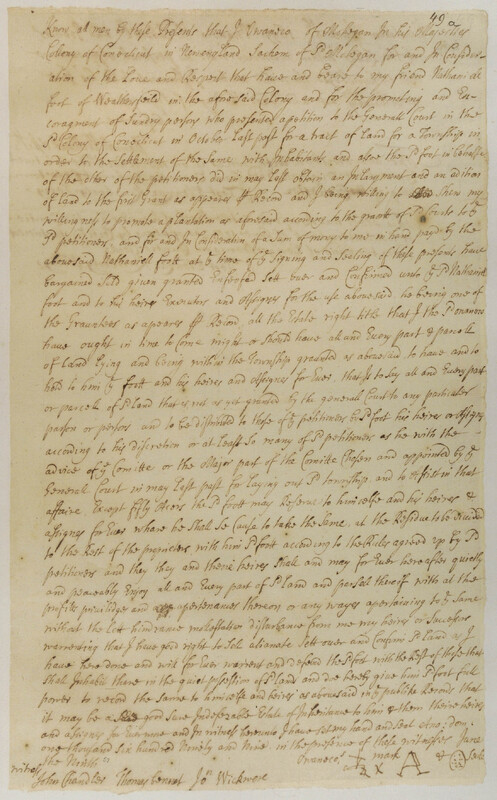 49
Know al men by these Presents that I Owaneco of Mohegan In his Majesties
Colony of Conecticut in Newengland Sachem of Sd Mohegan for and In Consider-
ation of the Love and Respect that I have and beare to my friend Nathaniel
foot of Weathersfeild in the aforesaid Colony and for the promoting and En-
coragment of Sundry persons who presented a petition to the Generall Court in the
Sd Colony of Conecticut in October Last past for a tract of Land for a Township in
order to the Settlement of the Same with Inhabitants and alsoe the Sd foot in behalfe
of the other of the petitioners did in may Last obtain an Inlargment and an adition
of Land to the first Grant as appears Record and I being willing to Shew my
willingness to promote a plantation as aforesaid according to the grant of Sd Courte to ye
Sd petitioners and for and In Consideration of a Sum of money to me in hand payd by the
abovesaid Nathaniel foott at ye time of ye Signing and Sealing of these presents have
bargained Sold given granted Enfeoffed Sett over and Confirmed unto ye Sd Nathaniel
foot and to his heires Executors and assignes for the use abovesaid he being one of
the Grauntees as appears Record all the Estate right title that I the Sd owaneco
have ought in time to Come might or Should have all and Every part & parcell
of Land Lying and being within the Township granted as abovesaid to have and to
hold to him ye foott and his heires and assignes for Ever that is to Say all and Every part
or parcele of Sd Land that is not as yet granted by the general Court to any particuler
person or persons and to be distributed to those of ye petitioners by Sd foot his heires or assignes
according to his discretion or at Least So many of Sd petitioners as he with the
advice of ye Comitte or the Major part of the Comitte Chosen and appointed by ye
General Court in may Last past for Laying out Sd township and to assist in that
affaire Except fifty Acres the Sd foott may Reserve to himselfe and his heires &
assignes for Ever whare he Shal See Cause to take the Same at the Residue to be devided
to the Rest of the proprieters with him Sd foott according to the Rules agreed up by Sd
petitioners and they they and theire heires Shall and may for Ever hereafter quietly
and peaceably Enjoy all and Every part of Sd Land and parsell thereoff with al the
profits priviledges and apertenances thereon or any wayes apertaining to ye Same
without the Lett hindrance molestation disturbance from me my heires or Successors
warrenting that I have good right to Sell alianate Sett over and Confirm Sd Land as I
have here done and wil for Ever warrent and defend the Sd foot with the Rest of those that
Shall Inhabit thare in the quiet possession of Sd Land and doe hereby give him Sd foot full
power to record the Same to himselfe and heires as abovesaid in ye publike Records that
it may be a good Sure Indefeazible Estate of Inheritance to him & them theire heires
and assignes for Evermore and In witness hereunto I have set my hand and seal Anno: dom:
one thousand six hundred ninety and Nine in the presence of these witnesses June
the Nineth
Owaneco mark & Seale
witness
John Chandler Thomas Jon Wickwere